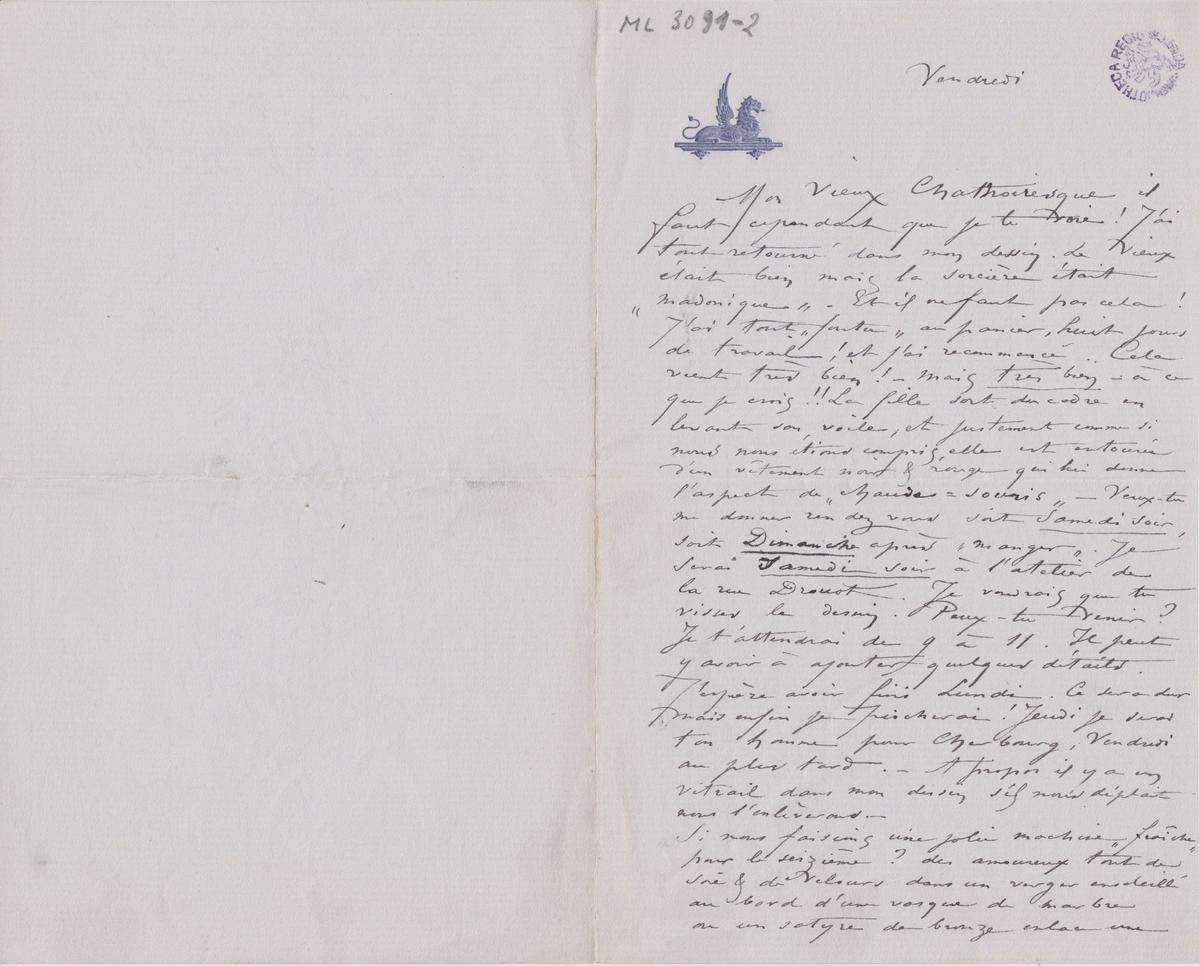 ML 3091-2
Vendredi
Mon Vieux il
faut cependant que je te voie ! J'ai
tout retourné dans mon dessin. Le Vieux
était bien mais la sorcière était
"madonique" - Et il ne faut pas cela !
J'ai tout "foutu" au panier, huit jours
de travail ! et j'ai recommencé .. Cela
vient très bien ! - Mais très bien - à ce
que je crois !! La fille sort du cadre en
levant son voile, et justement comme si
nous nous étions compris, elle est entourée
d'un vêtement noir & rouge qui lui donne
l'aspect de "chaude = souris" - Veux-tu
me donner rendez vous soit Samedi soir,
soit Dimanche après "manger". Je
serai Samedi soir à l'atelier de
la rue Drouot. Je voudrais que tu
visses le dessin. Peux-tu venir ?
Je t'attendrai de 9 à 11. Il peut
y avoir à ajouter quelques détails.
J'espère avoir fini Lundi. Ce sera dur
mais enfin je piocherai ! Jeudi je serai
ton homme pour Cherbourg, Vendredi
au plus tard. - A propos il y a un
vitrail dans mon dessin s'il nous déplait
nous l'enlèverons -
Si nous faisions une jolie machine "fraîche"
pour le seizième ? des amoureux tout de
soie & de velours dans un verger ensoleillé
au bord d'une vasque de marbre
ou un satyre de bronze enlace une